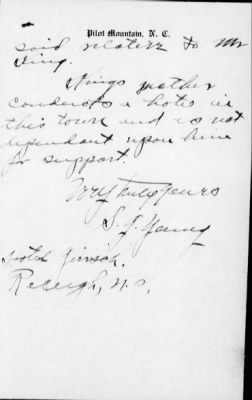 Pilot Mountain, N. C.
said relative to Mr
King.
Kings mother
conducts a hotel in
this town and is not
dependant upon him
for support.
Very truly yours
S. J. Young
Hotel
Raleigh, N.C.